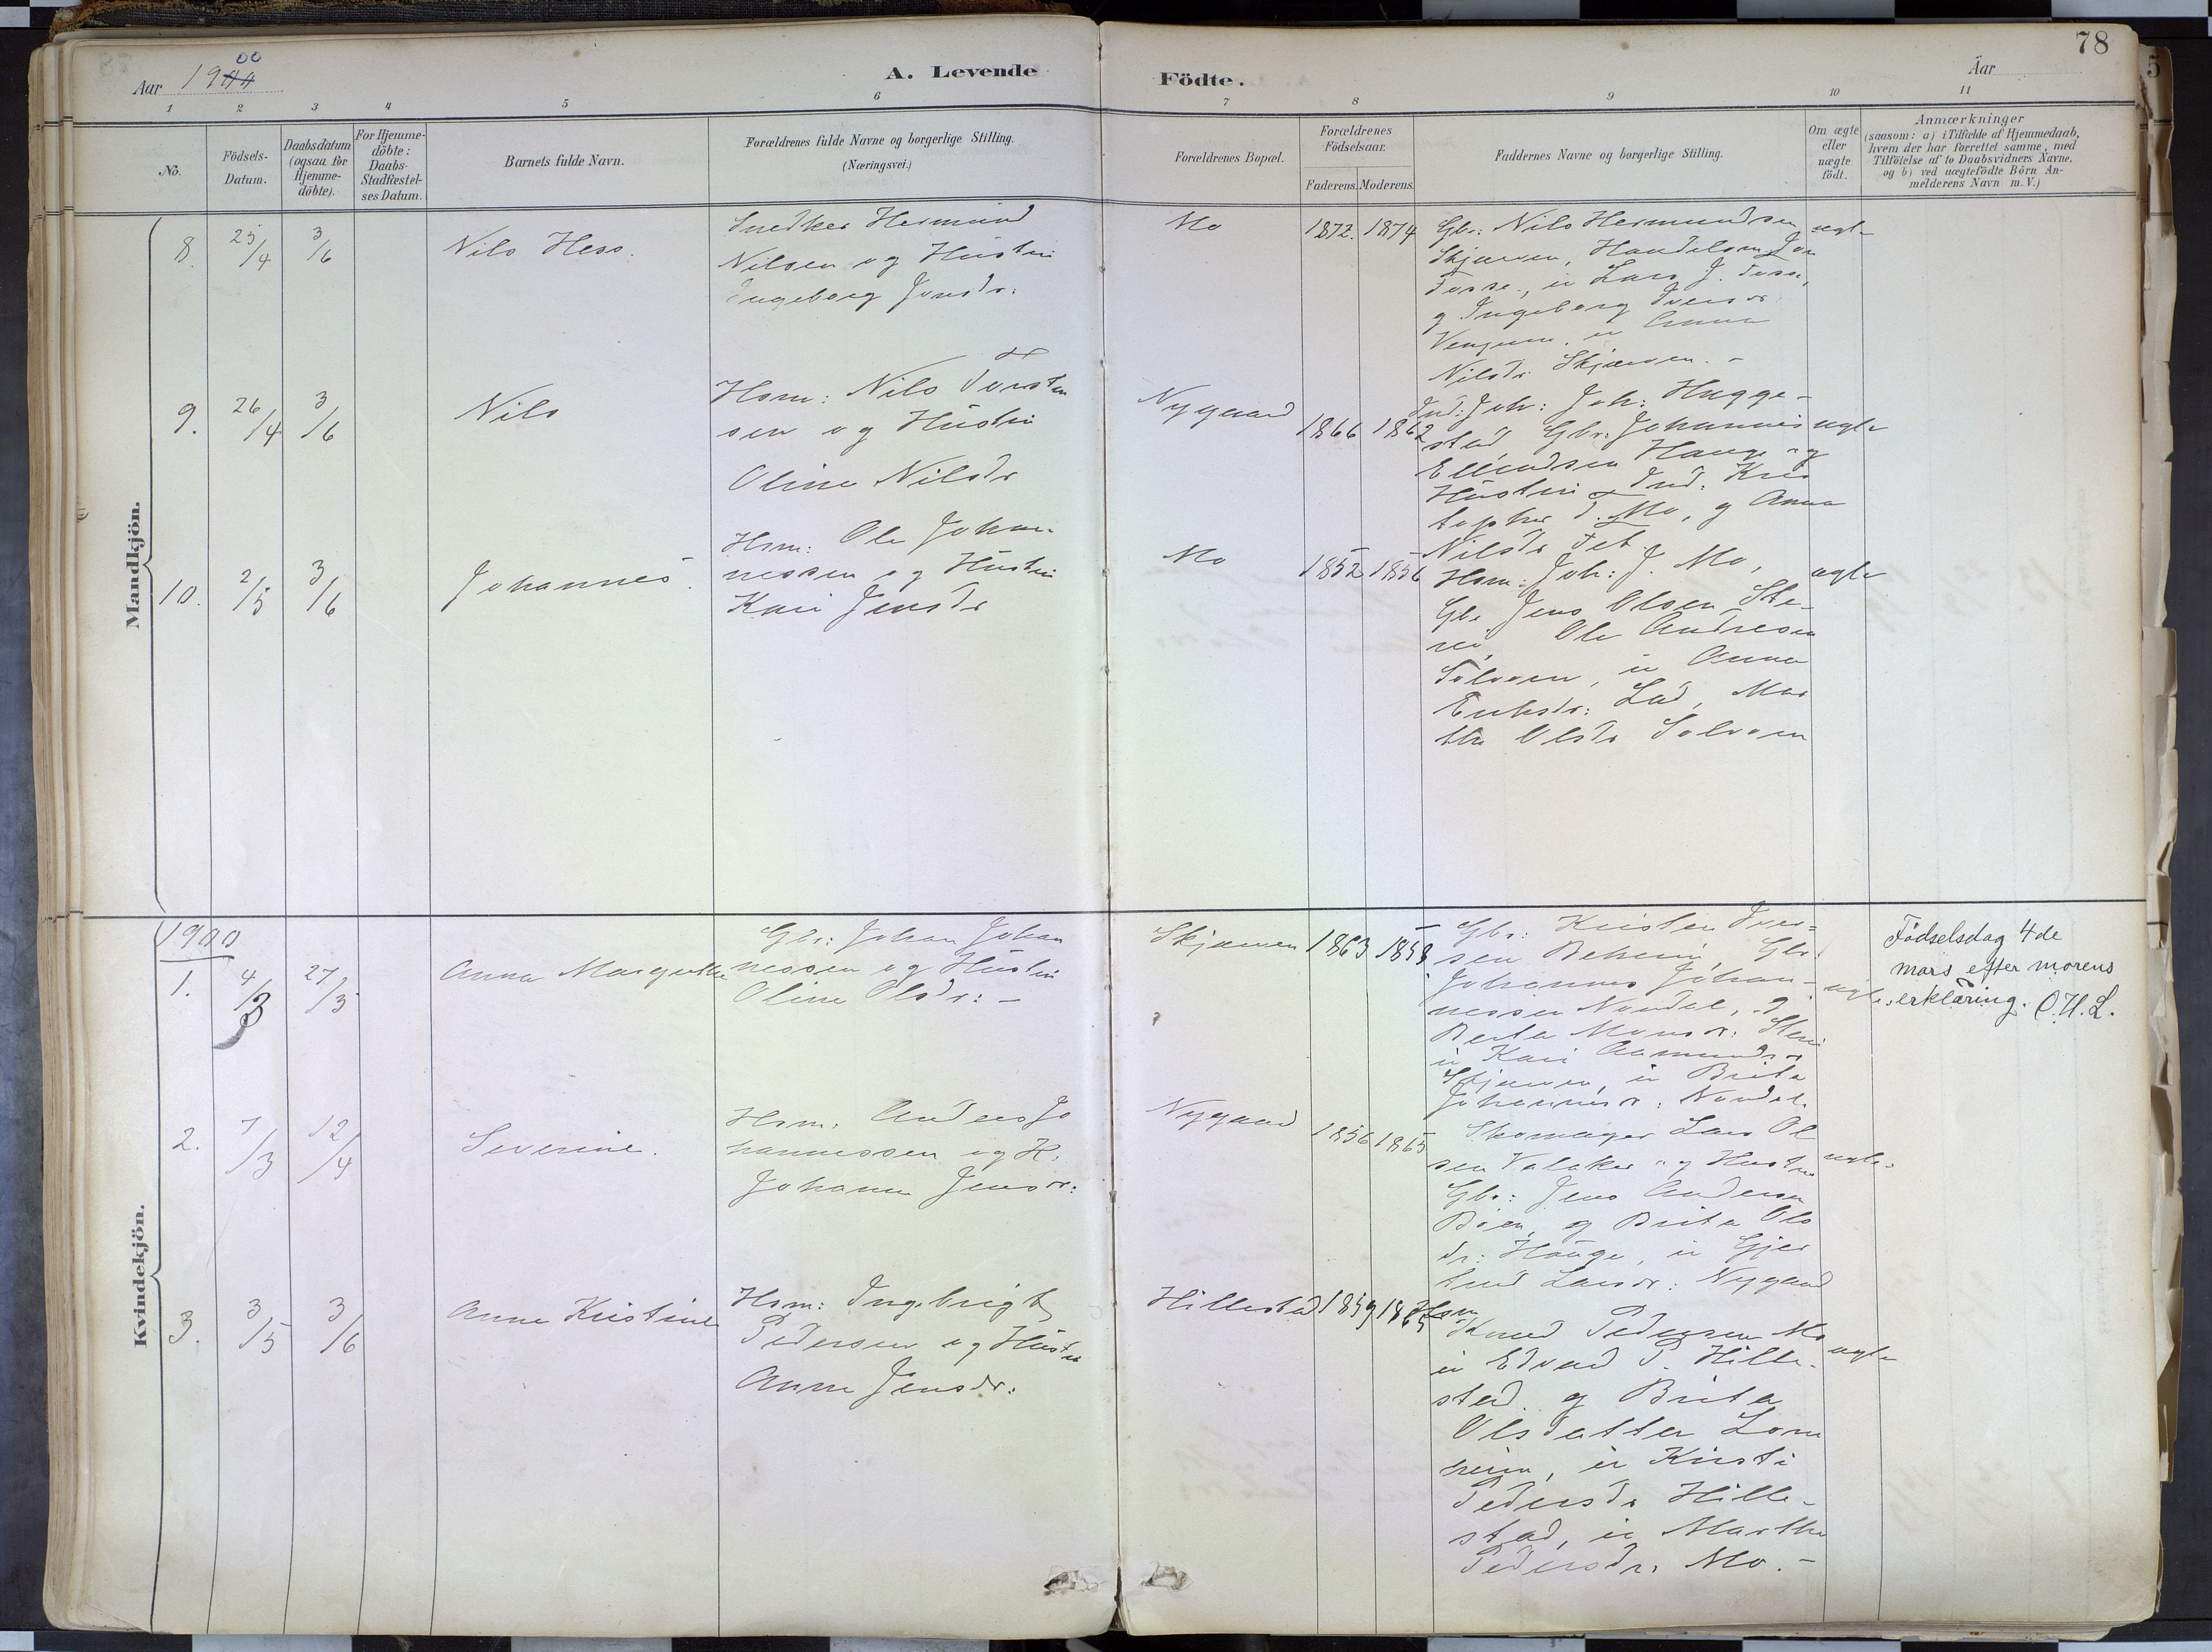 Aar 1944 00
A. Levende Födte.
78
Aar
1 2 3 4 5 6 7 8 9 10 11
No.
Födsels-Datum.
Daabsdatum (ogsaa for Hjemme-döbte).
For Hjemme-döbte: Daabs-Stadfæstel-ses Datum.
Barnets fulde Navn.
Forældrenes fulde Navne og borgerlige Stilling.
(Næringsvei.)
Forældrenes Bopæl.
Forældrenes Födselsaar.
Faderens. Moderens.
Faddernes Navne og borgerlige Stilling.
Om ægte eller uægte födt.
Anmærkninger
(saasom: a) i Tilfælde af Hjemmedaab,
hvem der har forrettet samme, med
Tilföielse af to Daabsvidners Navne,
og b) ved uægtefödte Börn An-
melderens Navn m. V.)
Mandkjön.
8. 25/4 3/6
Nils Hess.
Snedker Hermund
Nilsen og Hustru
Ingeborg Jonsdr:
Mo
1872. 1874
Gbr: Nils Hermundsen
Skjærven, Handelsm. Jon
Fosse, u Lars J. Fosse,
og Ingeborg Iversdr
Vengum, u Anna
Nilsdr Skjærven. -
ægte
9. 26/4 3/6
Nils
Hsm: Nils Torsten
sen og Hustru
Oline Nilsdr
Nygaard
1866 1862
Ind: Joh: Joh: Hugge-
stad Gbr: Johannes
Ellendsen Hauge og
Hustru Ind. Kris
topher T. Mo, og Anna
Nilsdr
ægte
10. 2/5 3/6
Johannes.
Hsm: Ole Johan
nessen og Hustru
Kari Jensdr
Mo
1852 1856
Hsm: Joh: J. Mo,
Gbr Jens Olsen Ste-
ni, Ole Andresen
Solvorn, u Anna
Eriksdr: Lad, Mar
tha Olsdr Solvorn
ægte
Kvindekjön.
1900
1. 4/3 27/5
Anna Margrethe
Gbr: Johan Johan
nessen og Hustru
Oline Olsdr: -
Skjærven
1863 1858
Gbr: Kristen Iver-
sen Beheim, Gbr
Johannes Johan-
nessen Nondal, og
Berta Monsdr:
u Kari Aamundsdr
Skjærven, u Brita
Johannesdr: Nondal.
ægte
Födselsdag 4 de
mars efter morens
erklæring. O.H.L.
2. 7/3 12/4
Severine.
Hsm. Anders Jo
hannessen og H.
Johanna Jensdr:
Nygaard
1856 1865
Skomager Lars Ol
sen Valaker og Hustru
Gbr: Jens Andersen
Böen, og Brita Ols
dr: Hauge, u Gjer
trud Larsdr: Nygaard
ægte
3. 3/5 3/6
Anne Kristine
Hsm: Ingebrigt
Pedersen og Hustru
Anne Jensdr:
Hillestad
1859 1865
Hsm
Knud Pedersen Mo
u Edvard P. Hille-
stad, og Brita
Olsdatter Lom
heim, u Kristi
Pedersdr Hille-
stad, u Martha
Pedersdr. Mo. -
ægte